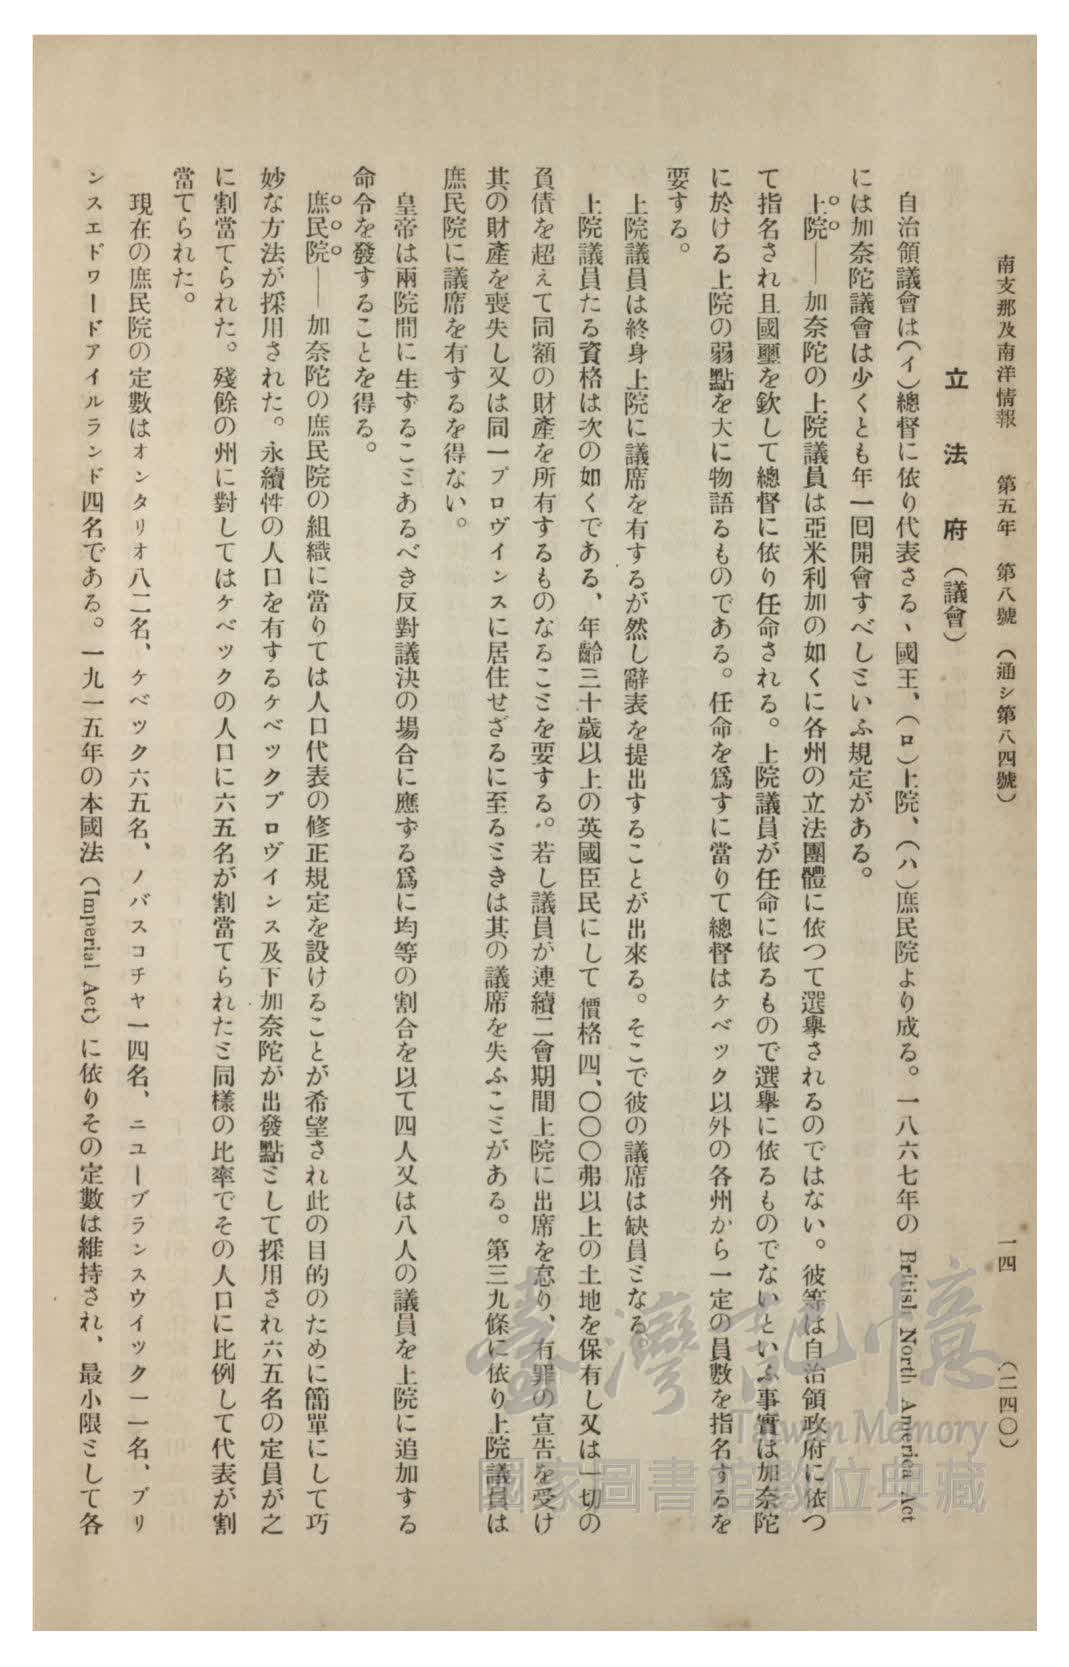 南支那及南洋情報　第五年　第八號　（通シ第八四號）　一四　（二四〇）
立法府（議會）
自治領議會は（イ）總督に依り代表さるヽ國王、（ロ）上院、（ハ）庶民院より成る。一八六七年の British North America Act
には加奈陀議會は少くとも年一囘開會すべしといふ規定がある。
上院――加奈陀の上院議員は亞米利加の如くに各州の立法團體に依つて選擧されるのではない。彼等は自治領政府に依つ
て指名され且國璽を欽して總督に依り任命される。上院議員が任命に依るもので選擧に依るものでないといふ事實は加奈陀
に於ける上院の弱點を大に物語るものである。任命を爲すに當りて總督はケベック以外の各州から一定の員數を指名するを
要する。
上院議員は終身上院に議席を有するが然し辭表を提出することが出來る。そこで彼の議席は缺員となる。
上院議員たる資格は次の如くである、年齡三十歲以上の英國臣民にして價格四、〇〇〇弗以上の土地を保有し又は一切の
負債を超えて同額の財產を所有するものなることを要する。若し議員が連續二會期間上院に出席を怠り、有罪の宣告を受け
其の財產を喪失し又は同一プロヴインスに居住せざるに至るときは其の議席を失ふことがある。第三九條に依り上院議員は
庶民院に議席を有するを得ない。
皇帝は兩院間に生ずることあるべき反對議決の場合に應ずる爲に均等の割合を以て四人又は八人の議員を上院に追加する
命令を發することを得る。
庶民院――加奈陀の庶民院の組織に當りては人口代表の修正規定を設けることが希望され此の目的のために簡單にして巧
妙な方法が採用された。永續性の人口を有するケベックプロヴインス及下加奈陀が出發點として採用され六五名の定員が之
に割當てられた。殘餘の州に對してはケベックの人口に六五名が割當てられたと同樣の比率でその人口に比例して代表が割
當てられた。
現在の庶民院の定數はオンタリオ八二名、ケベック六五名、ノバスコチヤ一四名、ニユーブランスウイック一一名、プリ
ンスエドワードアイルランド四名である。一九一五年の本國法（Imperial Act）に依りその定數は維持され、最小限として各
臺灣記憶
Taiwan Memory
國家圖書館數位典藏